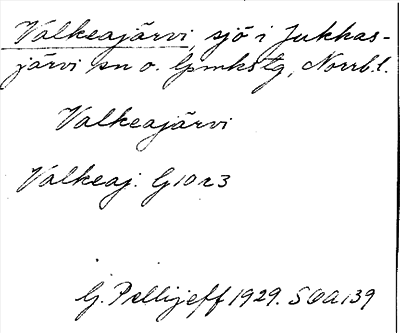 Valkeajärvi, sjö i Jukkas-
järvi sn o. lpmkstg, Norrb. l.
Valkeajärvi
Valkeaj. G10r3
G. Pellijeff 1929. SOA 139